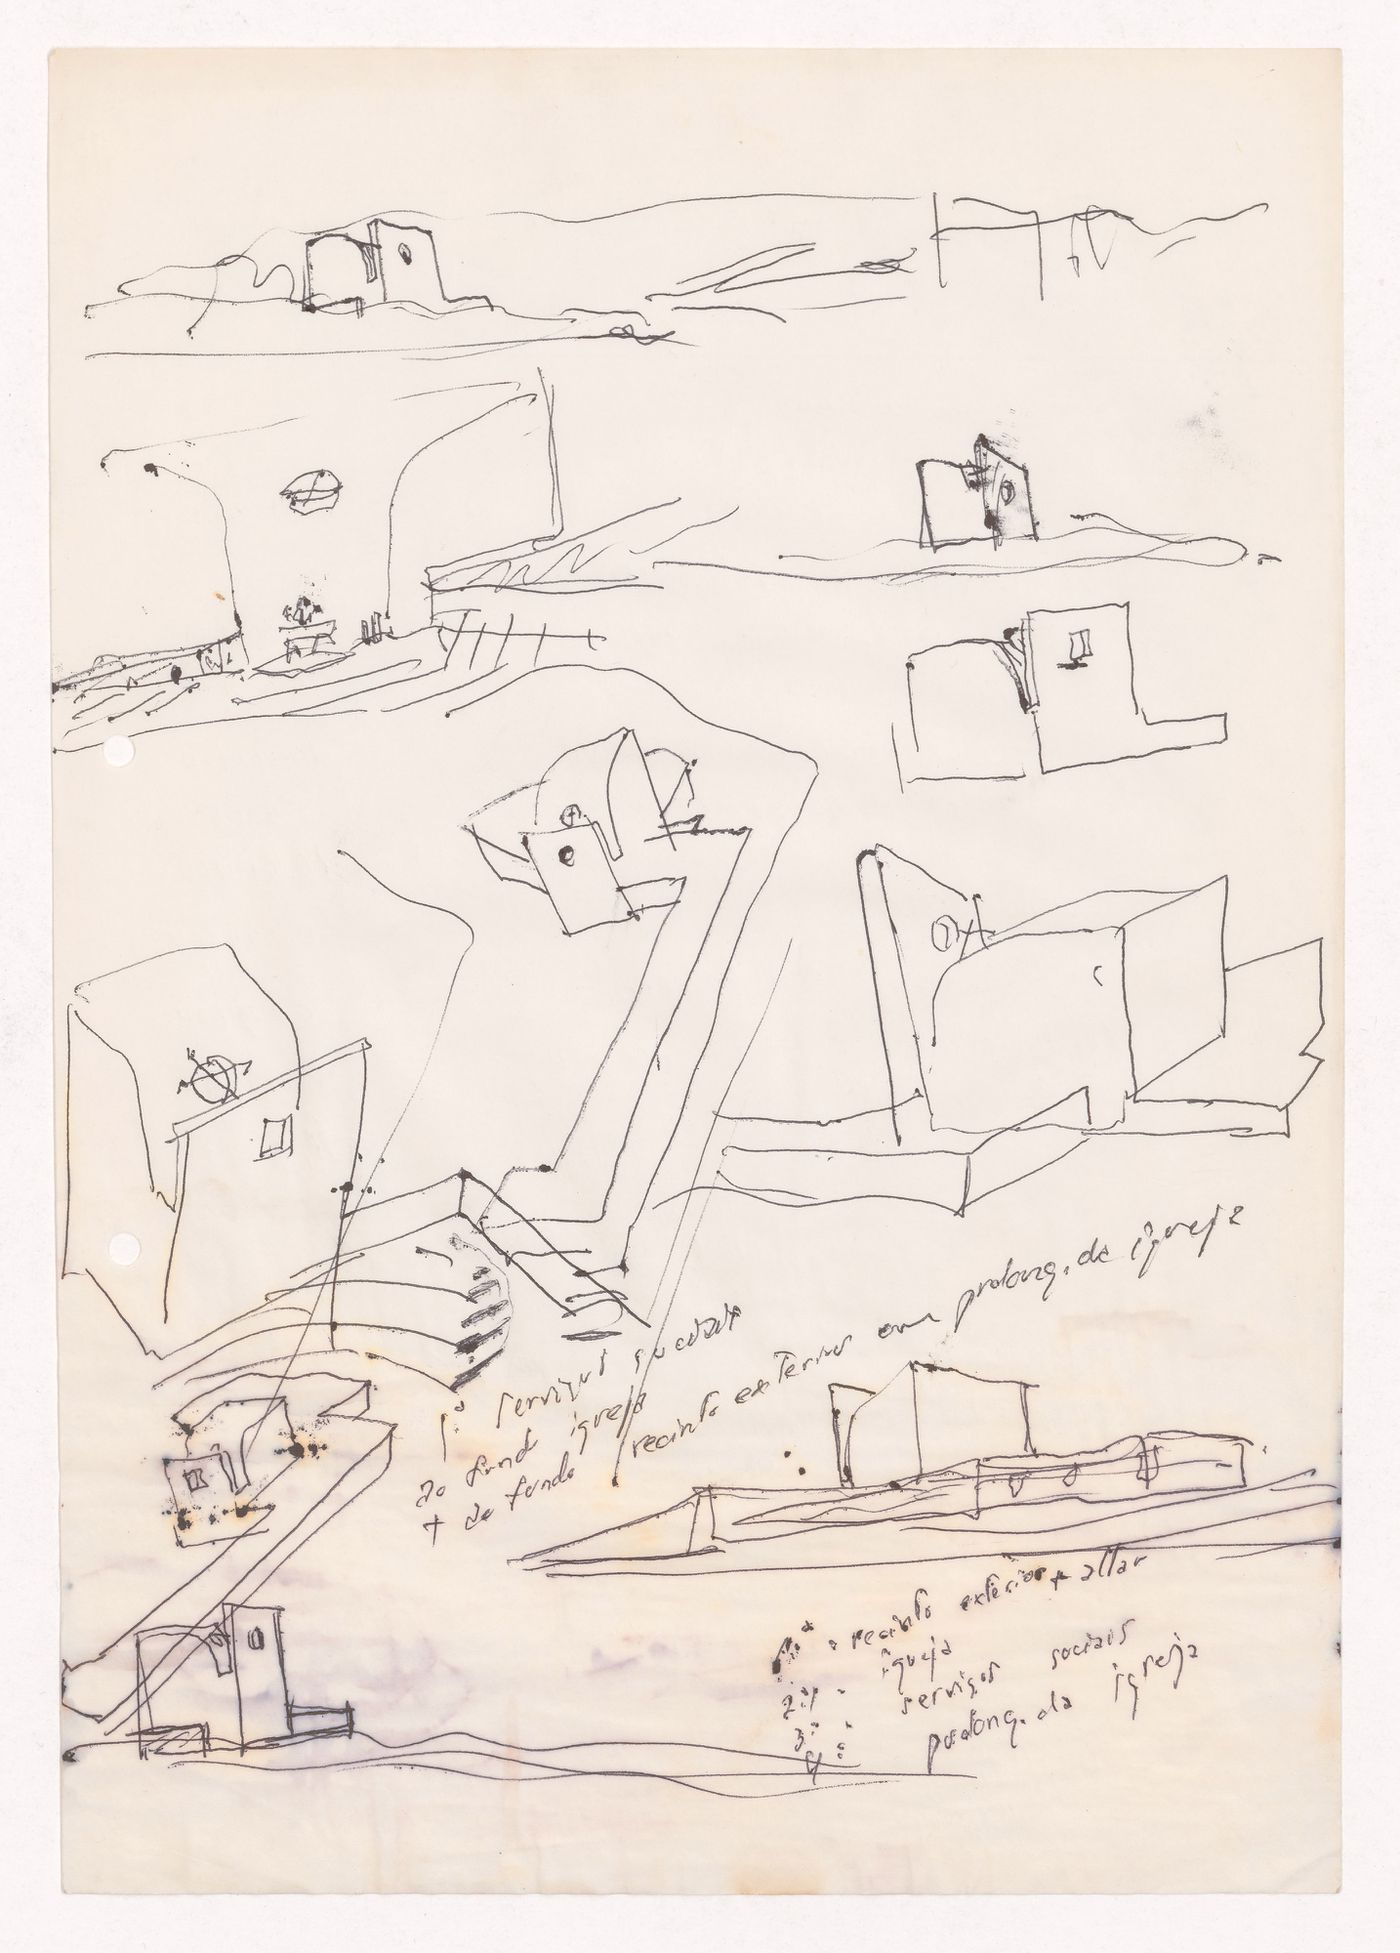 1.º serviços
do fundo igreja
+ de fundo recinto exterior em prolong. da igreja
1.º - recinto exterior + altar
2.º - igreja
3.º - serviços sociais
4.º prolong. da igreja